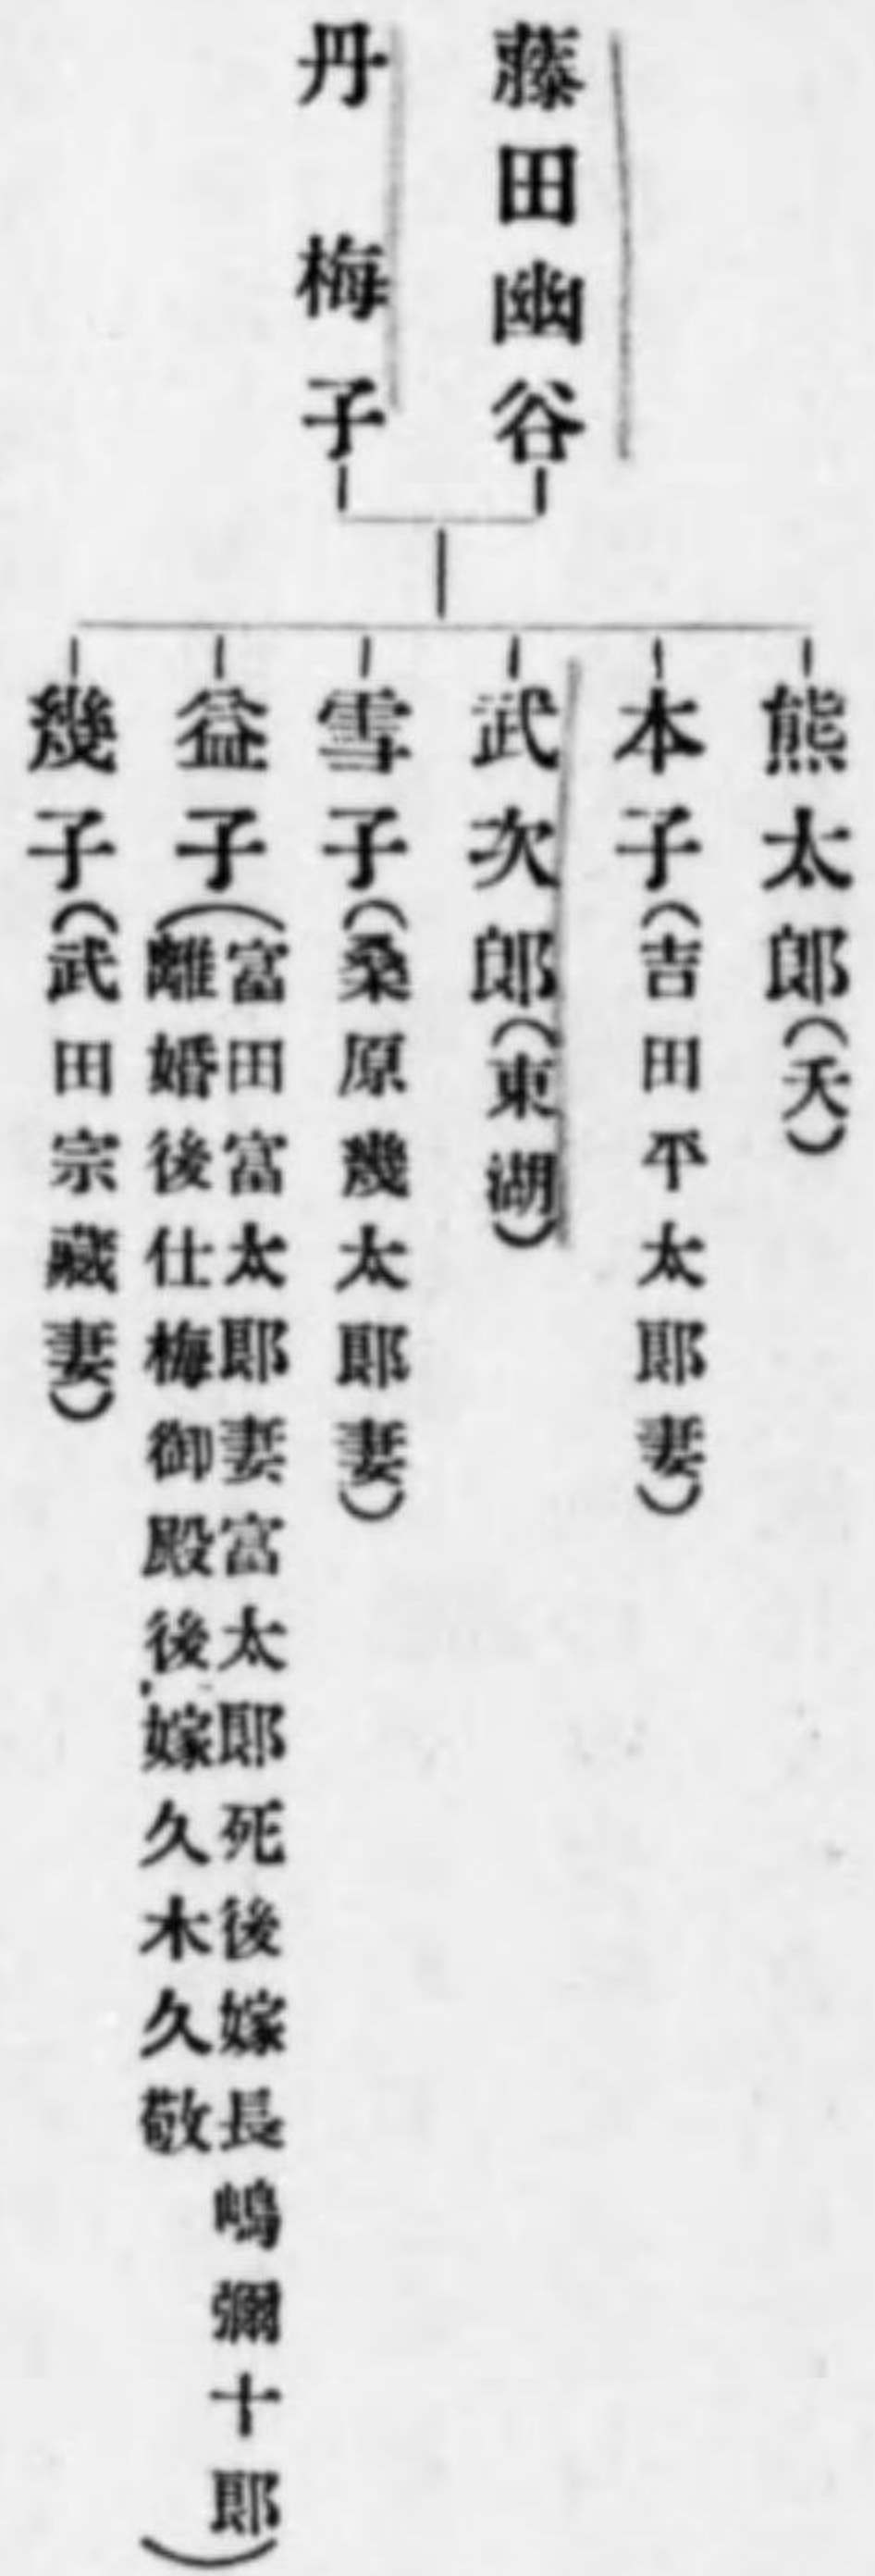 藤田幽谷
丹梅子
熊太郎(夭)
本子(吉田平太郎妻)
武次郎(東湖)
雪子(桑原幾太郎妻)
益子(富田富太郎妻富太郎死後嫁長嶋彌十郎
離婚後仕梅御殿後嫁久木久敬)
幾子(武田宗藏妻)